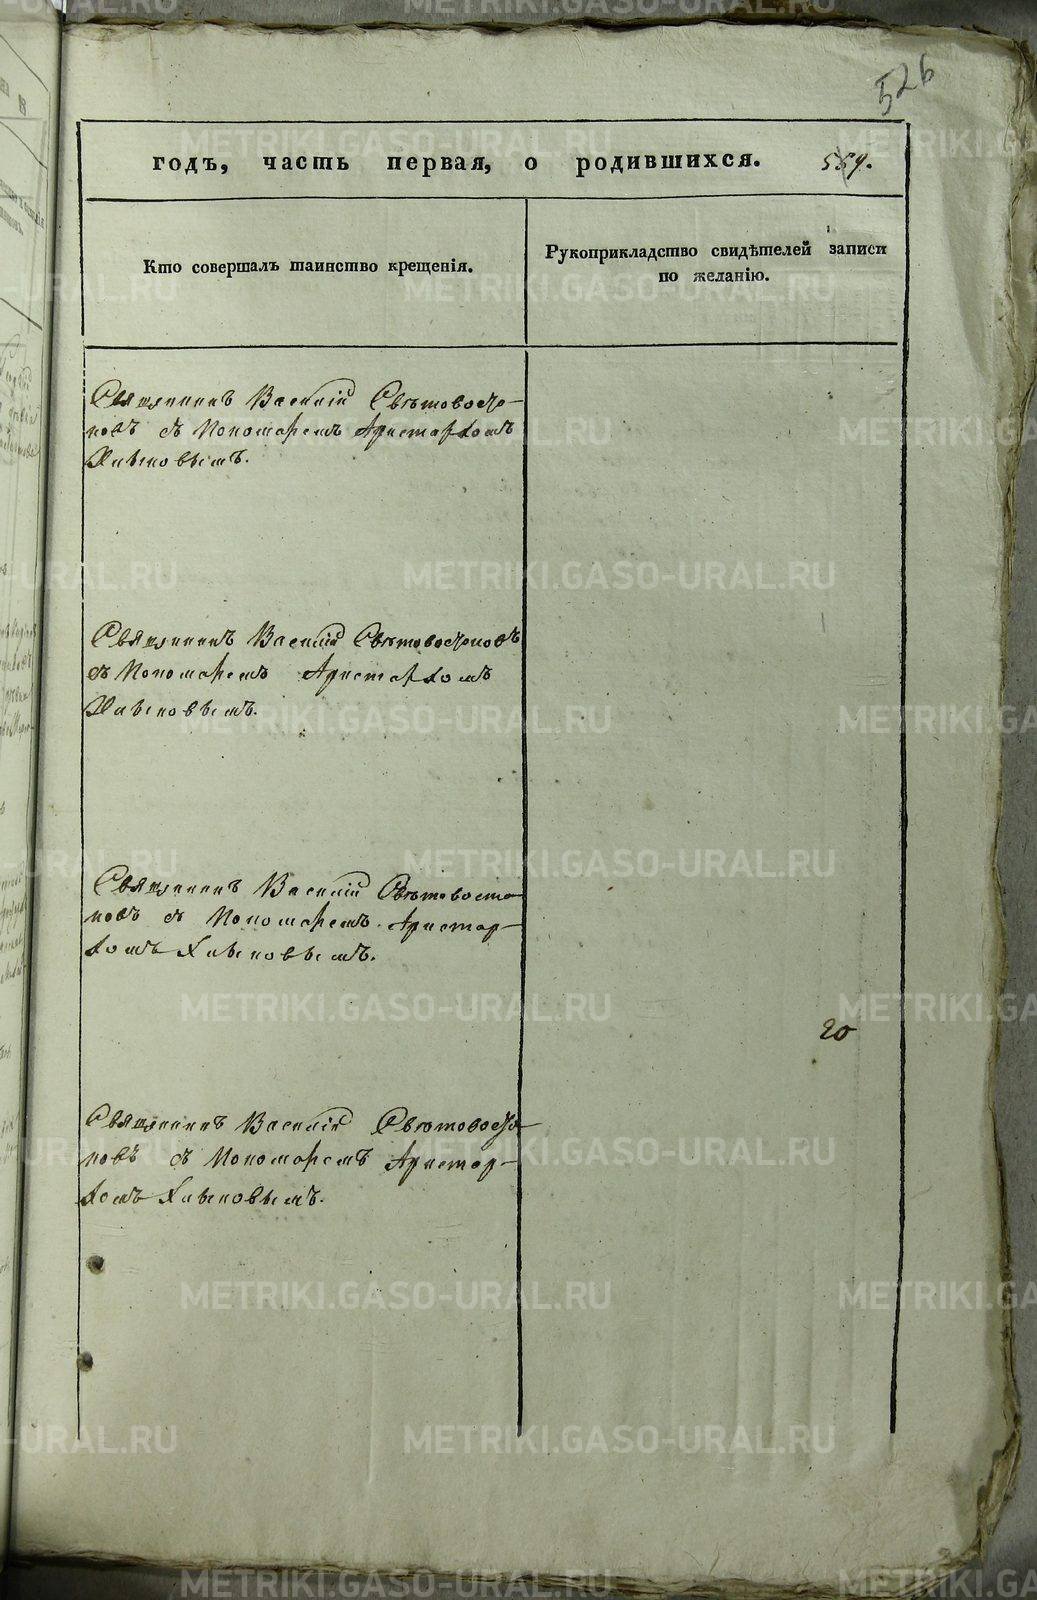 526
годъ, часть первая, о родившихся. 559.
Кто совершалъ таинство крещенія.
Рукоприкладство свидѣтелей записи
по желанію.
Священникъ Василій Свѣтовосто-
ковъ съ Пономаремъ Аристархомъ
Хлыновымъ.
Священникъ Василій Свѣтовостоковъ
съ Пономаремъ Аристархомъ
Хлыновымъ.
Священникъ Василій Свѣтовосто-
ковъ съ Пономаремъ Аристар-
хомъ Хлыновымъ.
20
Священникъ Василій Свѣтовосто-
ковъ съ Пономаремъ Аристар-
хомъ Хлыновымъ.
METRIKI.GASO-URAL.RU